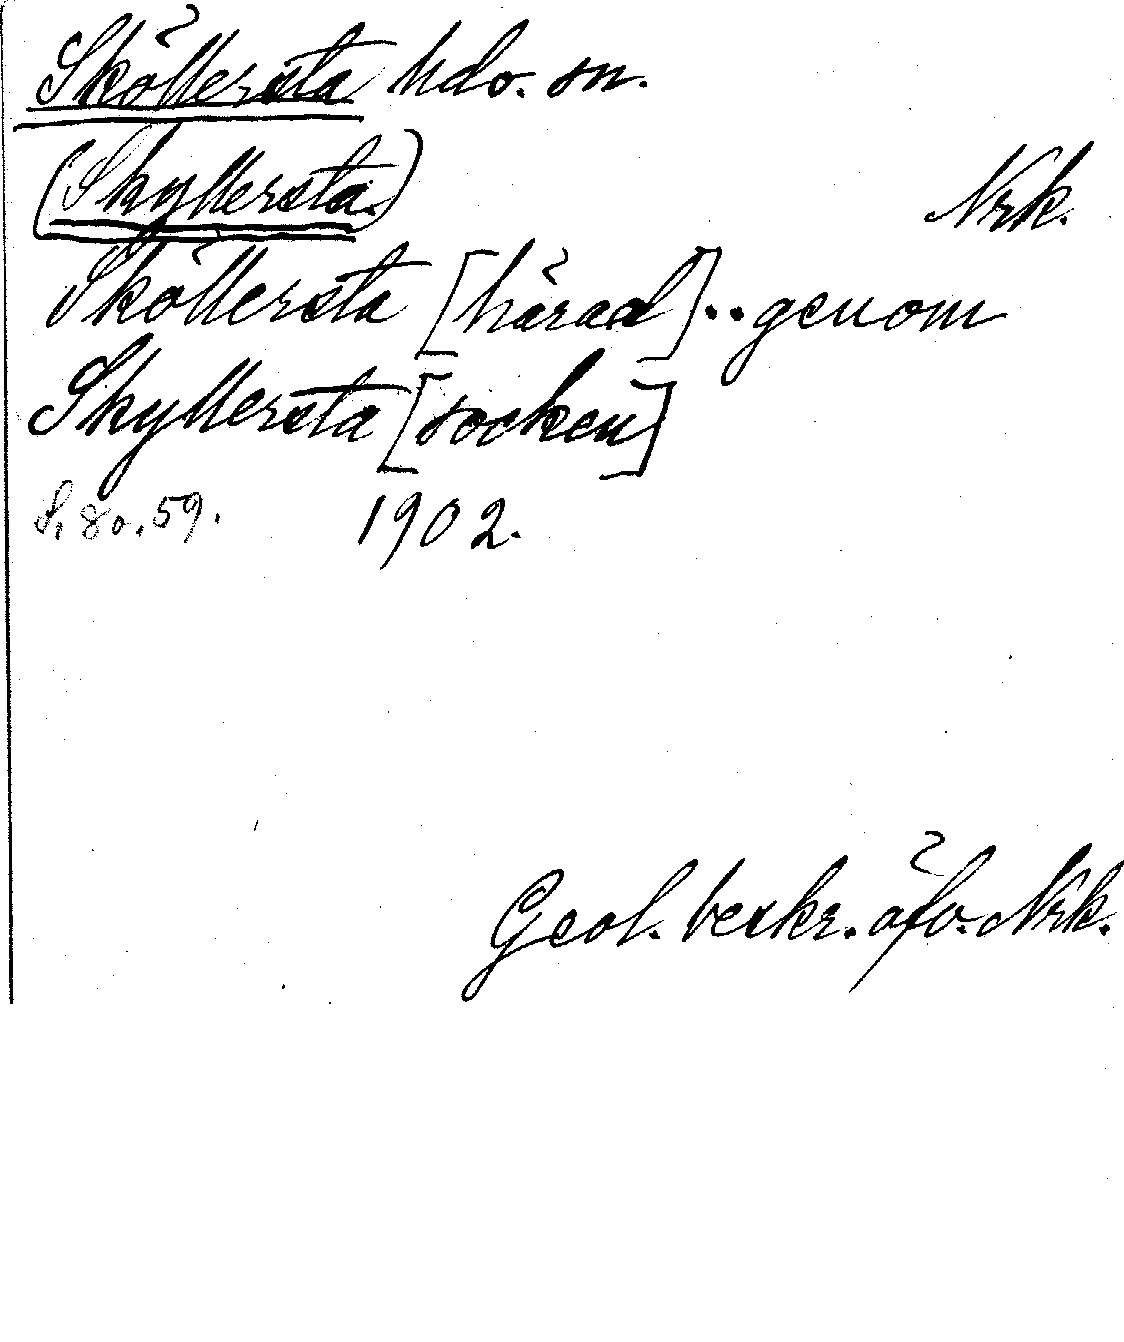 Sköllersta hdo. sn.
(Skyllersta.)
Nrk.
Sköllersta [härad]..genom
Skyllersta [socken]
S. 80, 59. 1902.
Geol. beskr. öfv. Nrk.